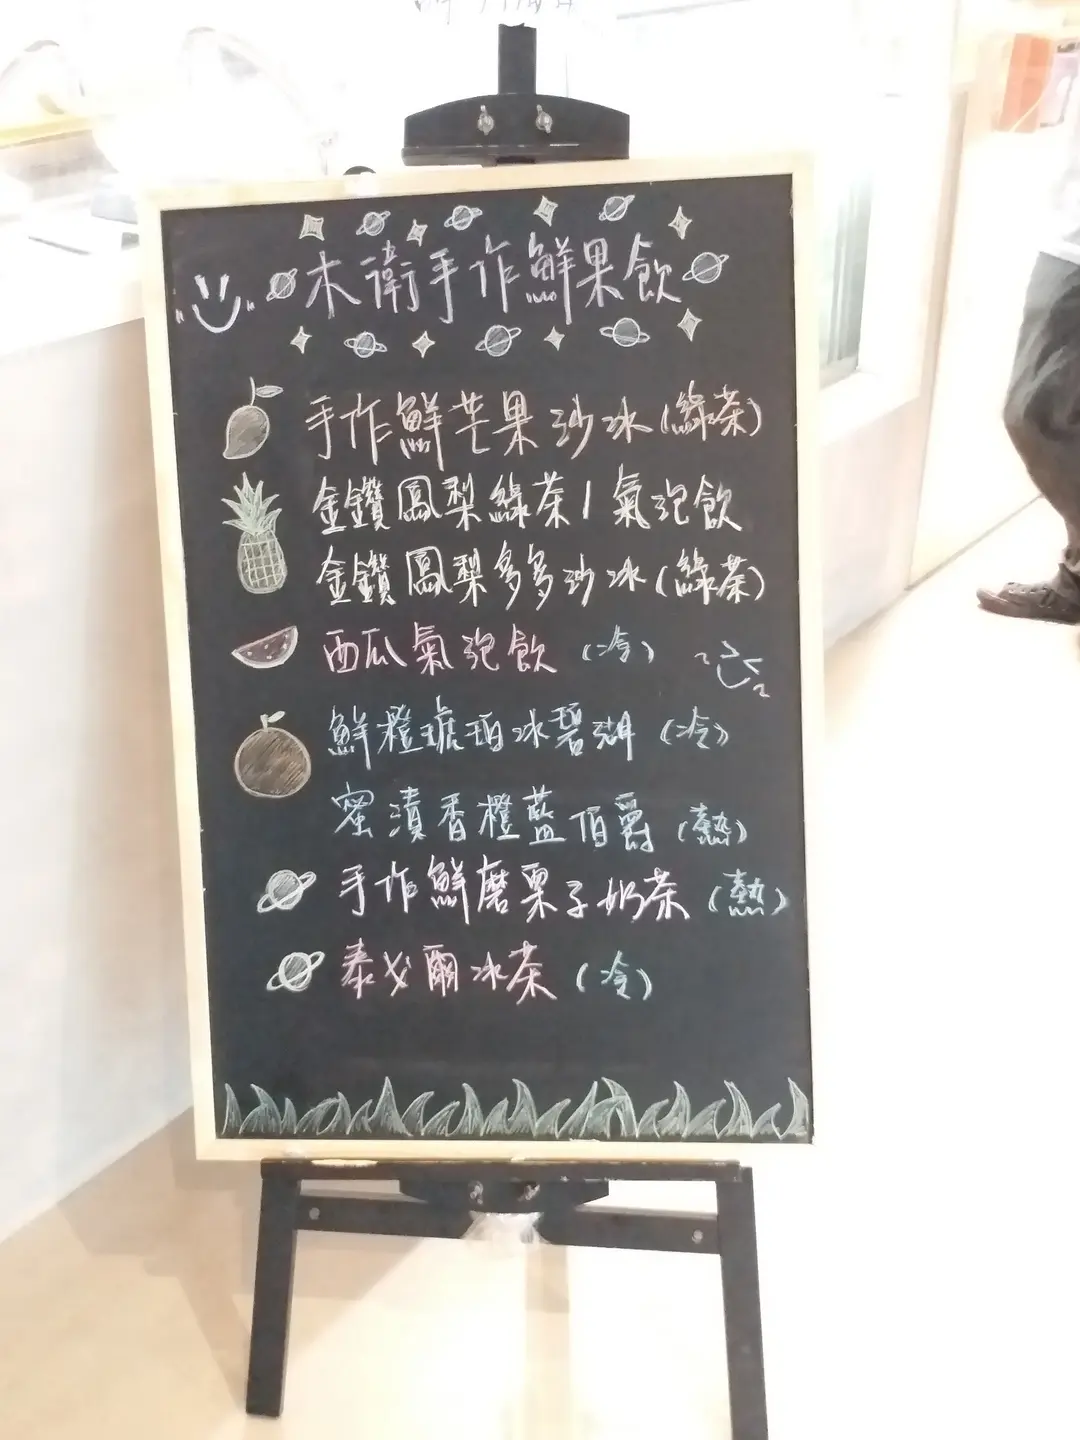 木衛手作鮮果飲
手作鮮芒果沙冰(綠茶)
金鑽鳳梨綠茶/氣泡飲
金鑽鳳梨多多沙冰(綠茶)
西瓜氣泡飲(冷)
鮮橙琥珀冰碧湖(冷)
蜜漬香橙藍伯爵(熱)
手作鮮磨栗子奶茶(熱)
泰戈爾冰茶(冷)